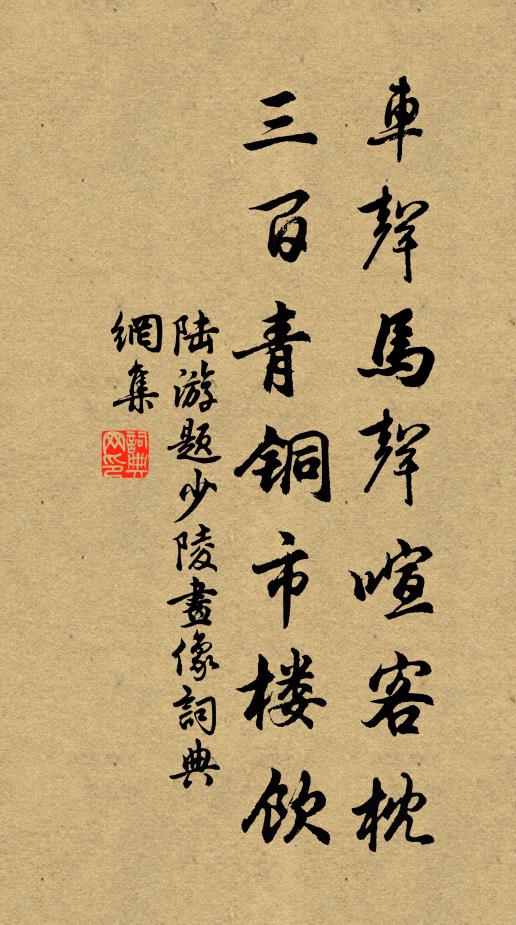 車聲馬聲喧客枕
三百青铜市楼飲
陆游题少陵畫像詞典
網集
詞典網印